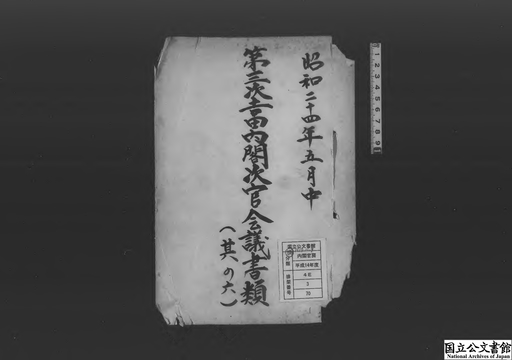 昭和二十四年五月中
第三次吉田内閣次官会議書類
(其の六)
国立公文書館
内閣官房
平成14年度
4E
2
70
1 2 3 4 5 6 7 8 9
国立公文書館
National Archives of Japan